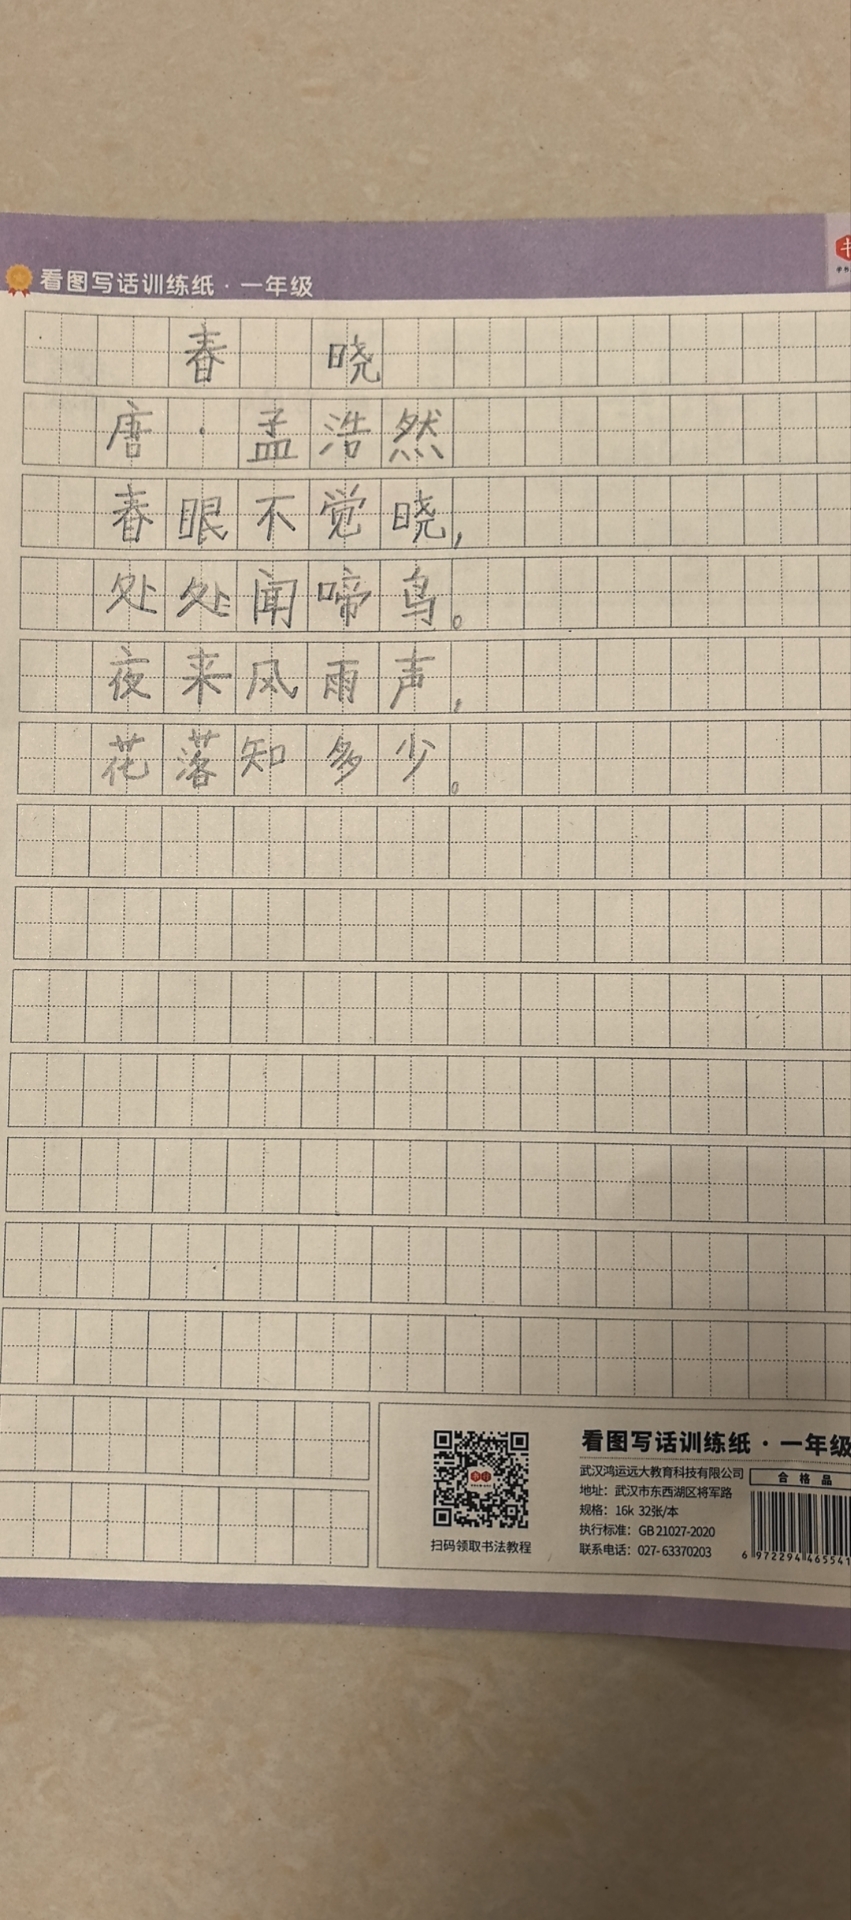 看图写话训练纸·一年级
春 晓
唐·孟浩然
春眼不觉晓,
处处闻啼鸟。
夜来风雨声,
花落知多少。
看图写话训练纸·一年级
武汉鸿运远大教育科技有限公司
地址：武汉市东西湖区将军路
规格：16k 32张/本
执行标准：GB 21027-2020
联系电话：027-63370203
扫码领取书法教程
合格品
6 972294 465541